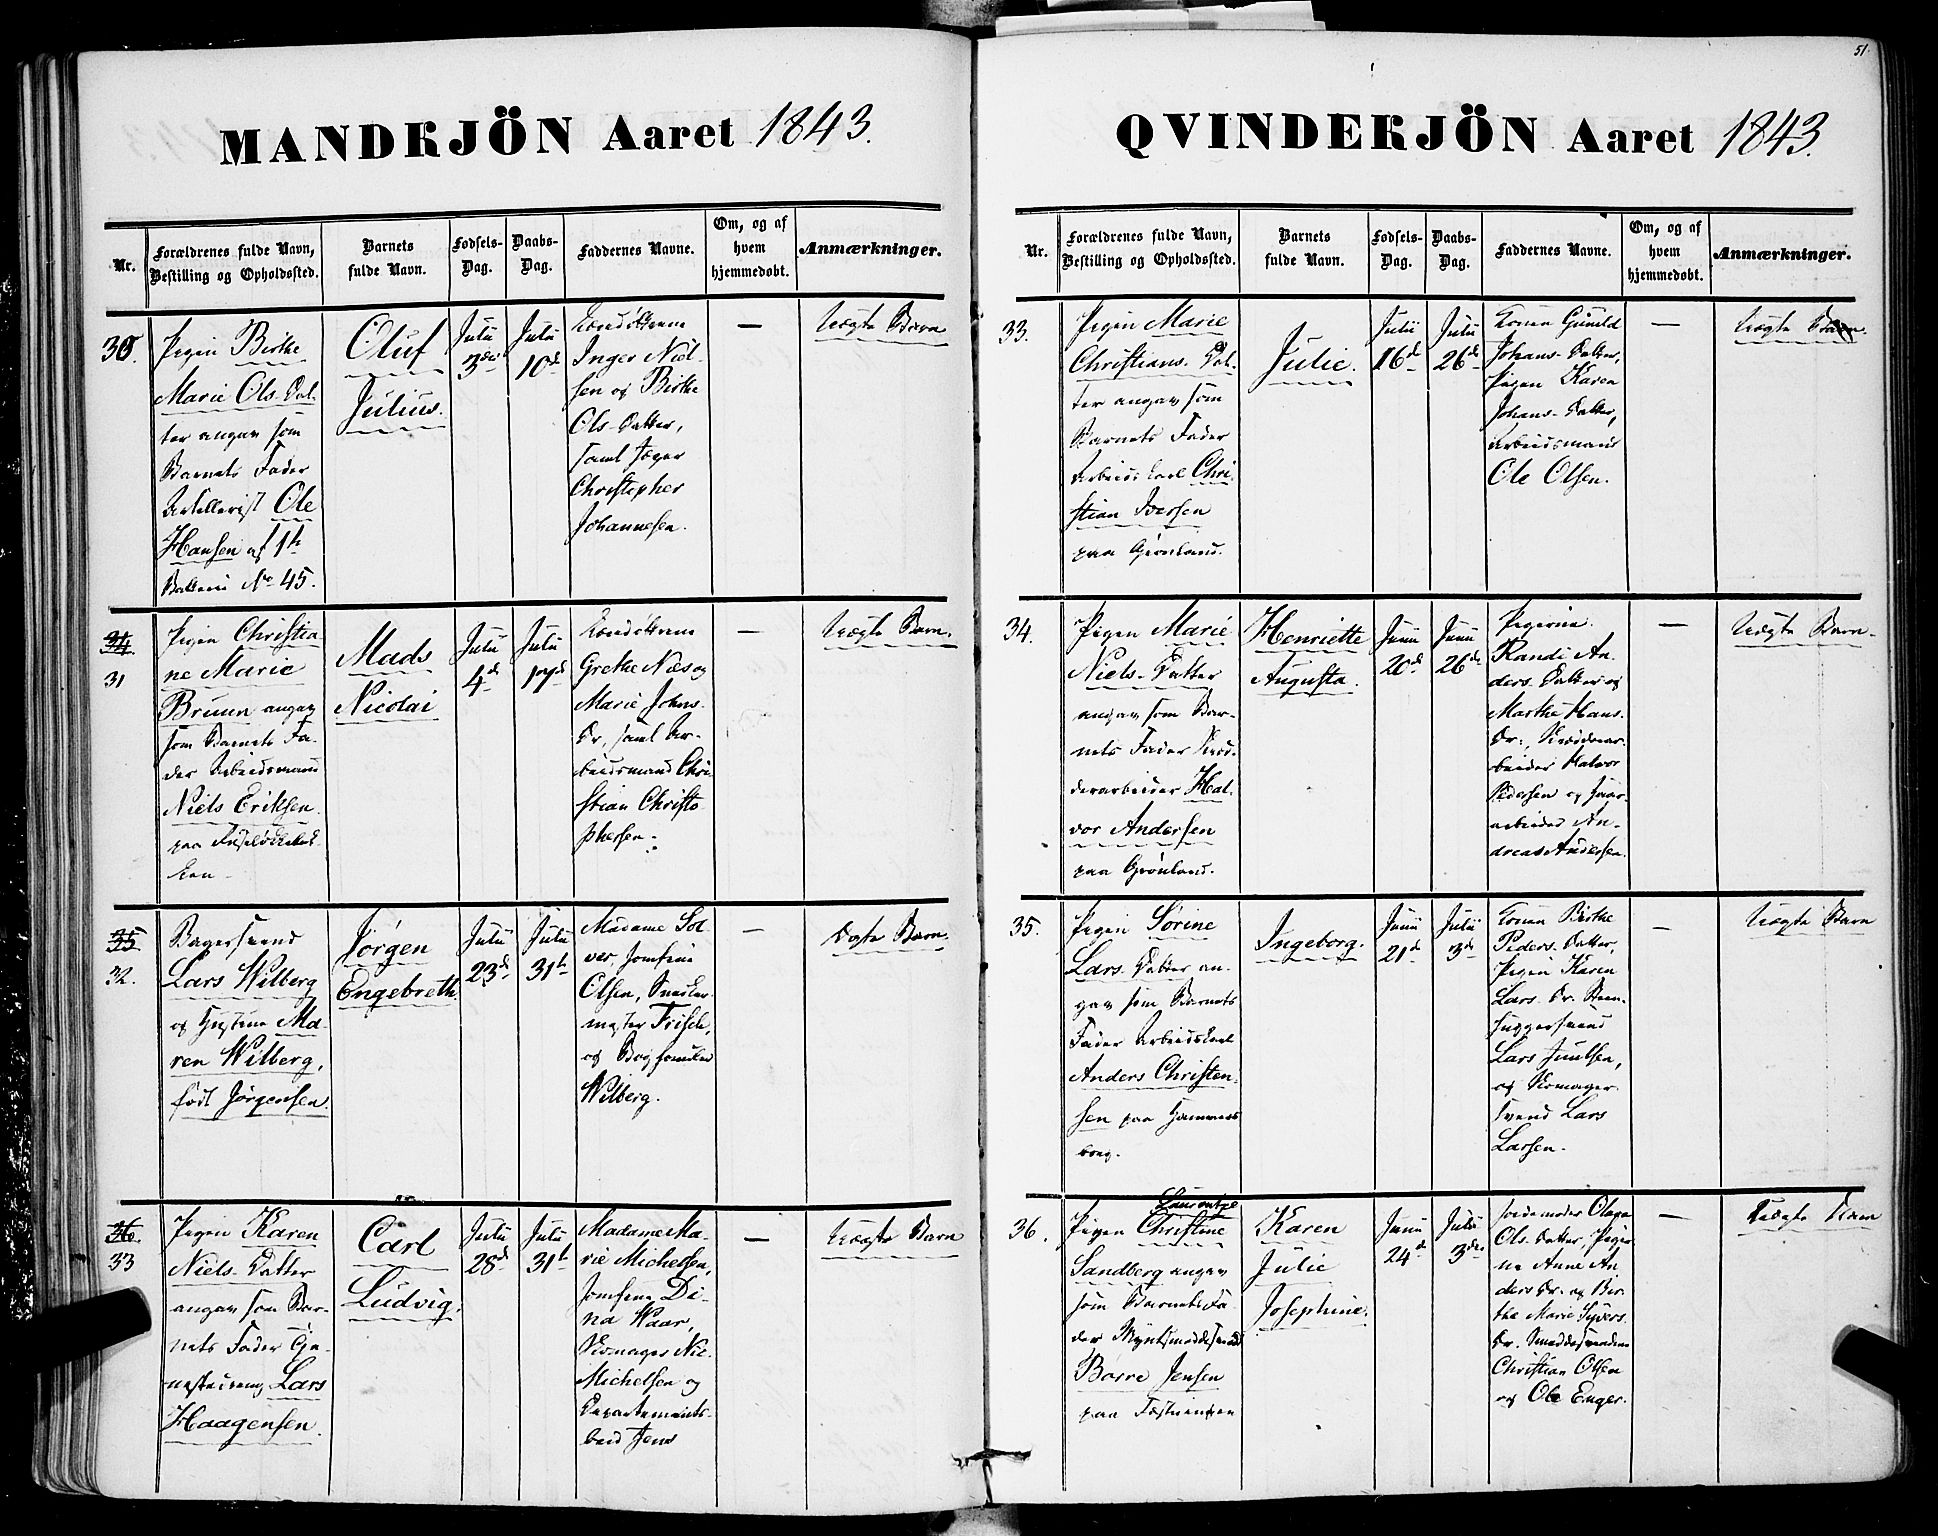 51.
MANDKJÖN Aaret 1843.
Nr.
Forældrenes fulde Navn,
Bestilling og Opholdssted.
Barnets
fulde Navn.
Fødsels-
Dag.
Daabs-
Dag.
Faddernes Navne.
Om, og af
hvem
hjemmedøbt.
Anmærkninger.
30.
Pigen Birthe
Marie Ols-Dat-
ter angav som
Barnets Fader
Artillerist Ole
Hansen af 1te
Batterie No 45.
Oluf
Julius.
Julii
3die
Julii
10de
Inger Niel-
sen og Birthe
Ols-Datter,
samt Jæger
Christopher
Johannesen.
—
Uægte Barn
34
31
Pigen Christia-
ne Marie
Bruun angav
som Barnets Fa-
der Arbeidsmand
Niels Eriksen
paa
Mads
Nicolai
Julii
4de
Julii
17de
Grethe Næs og
Marie Johns-
Dr, samt Ar-
beidsmand Chri-
stian Christo-
phersen.
—
Uægte Barn.
35
32.
Bagersvend
Lars Wilberg
og Hustrue Ma-
ren Wilberg,
født Jørgensen.
Jørgen
Engebreth
Julii
23de
Julii
31te
Madame Sol-
ver, Jomfrue
Olsen, Snedker-
mester Frisch,
og
Wilberg.
—
Ægte Barn.
36.
33
Pigen Karen
Niels-Datter
angav som Bar-
nets Fader
Lars
Haagensen.
Carl
Ludvig.
Julii
28de
Julii
31te
Madame Ma-
rie Michelsen,
Jomfrue Di-
na Kaar,
Skomager Nic.
Michelsen og
Departements-
bud Jens
—
Uægte Barn
QVINDEKJÖN Aaret 1843.
Nr.
Forældrenes fulde Navn,
Bestilling og Opholdssted.
Barnets
fulde Navn.
Fødsels-
Dag.
Daabs-
Dag.
Faddernes Navne.
Om, og af
hvem
hjemmedøbt.
Anmærkninger.
33.
Pigen Marie
Christians-Dat-
ter angav som
Barnets Fader
Arbeidskarl Chri-
stian Iversen
paa Grønland.
Julie.
Julii
16de
Julii
26de
Konen Gunild
Johans-Datter,
Pigen Karen
Johans-Datter,
Arbeidsmand
Ole Olsen.
—
Uægte Barn.
34.
Pigen Marie
Niels-Datter
angav som Bar-
nets Fader Krud-
derarbeider Hal-
vor Andersen
paa Grønland.
Henriette
Augusta.
Junii
20de
Junii
26de
Pigerne
Randi An-
ders-Datter og
Marthe Hans-
Dr., Krudderar-
beider Halvor
Pedersen og
arbeider An-
dreas Andersen.
—
Uægte Barn.
35.
Pigen Sørine
Lars-Datter an-
gav som Barnets
Fader Arbeidskarl
Anders Christen-
sen paa Hammers-
borg.
Ingeborg.
Junii
21de
Julii
3de
Konen Birthe
Peders-Datter,
Pigen Karen
Lars-Dr. Steen-
huggersvend
Lars Juulsen,
og Skomager-
svend Lars
Larsen.
—
Uægte Barn
36.
Laurentze
Pigen Christine
Sandberg angav
som Barnets Fa-
der Myntsmeddesvend
Børre Jensen
paa Fæstningen
Karen
Julie
Josephine.
Junii
24de
Julii
3die
Jordemoder Olava
Ols-Datter, Piger-
ne Anne An-
ders Dr. og Bir-
the Marie Syvers-
Dr. Smeddesvendene
Christian Olsen
og Ole Enger.
—
Uægte Barn